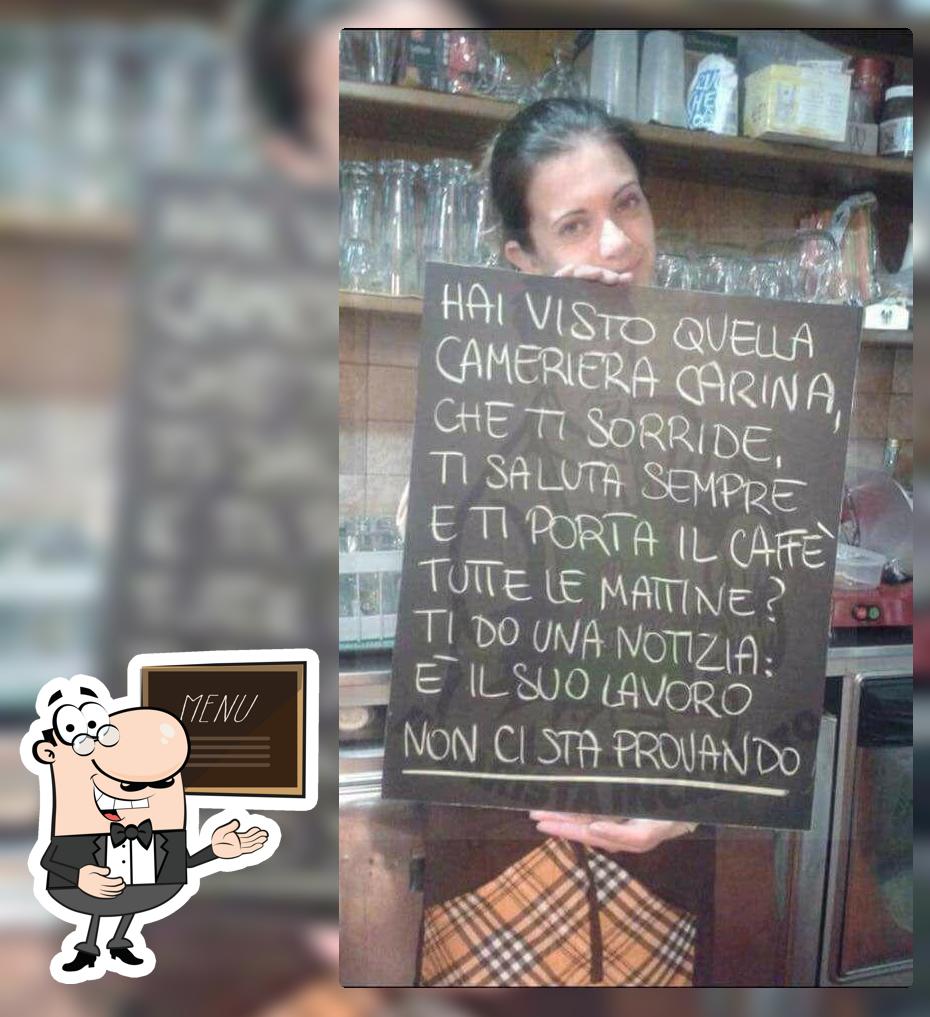 HAI VISTO QUELLA
CAMERIERA CARINA,
CHE TI SORRIDE,
TI SALUTA SEMPRE
E TI PORTA IL CAFFÈ
TUTTE LE MATTINE?
TI DO UNA NOTIZIA:
È IL SUO LAVORO
NON CI STA PROVANDO
MENU